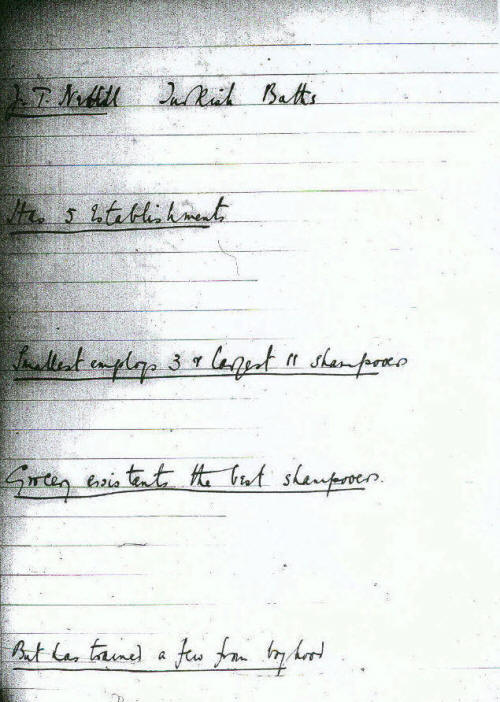 J. T. Nevill Turkish Baths
Has 5 Establishments
Smallest employs 3 & largest 11 shampooers
Grocery assistants the best shampooers.
But has trained a few from boyhood